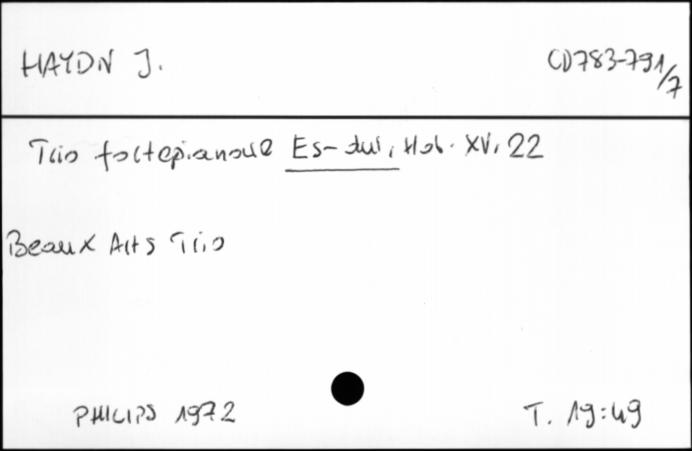 HAYDN J.
CD783-791/7
Trio fortepianowe Es-dur, Hob. XV, 22
Beaux Arts Trio
PHILIPS 1972
T. 19:49